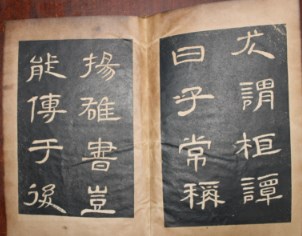 尤謂桓譚
曰子常稱
揚雄書豈
能傳于後